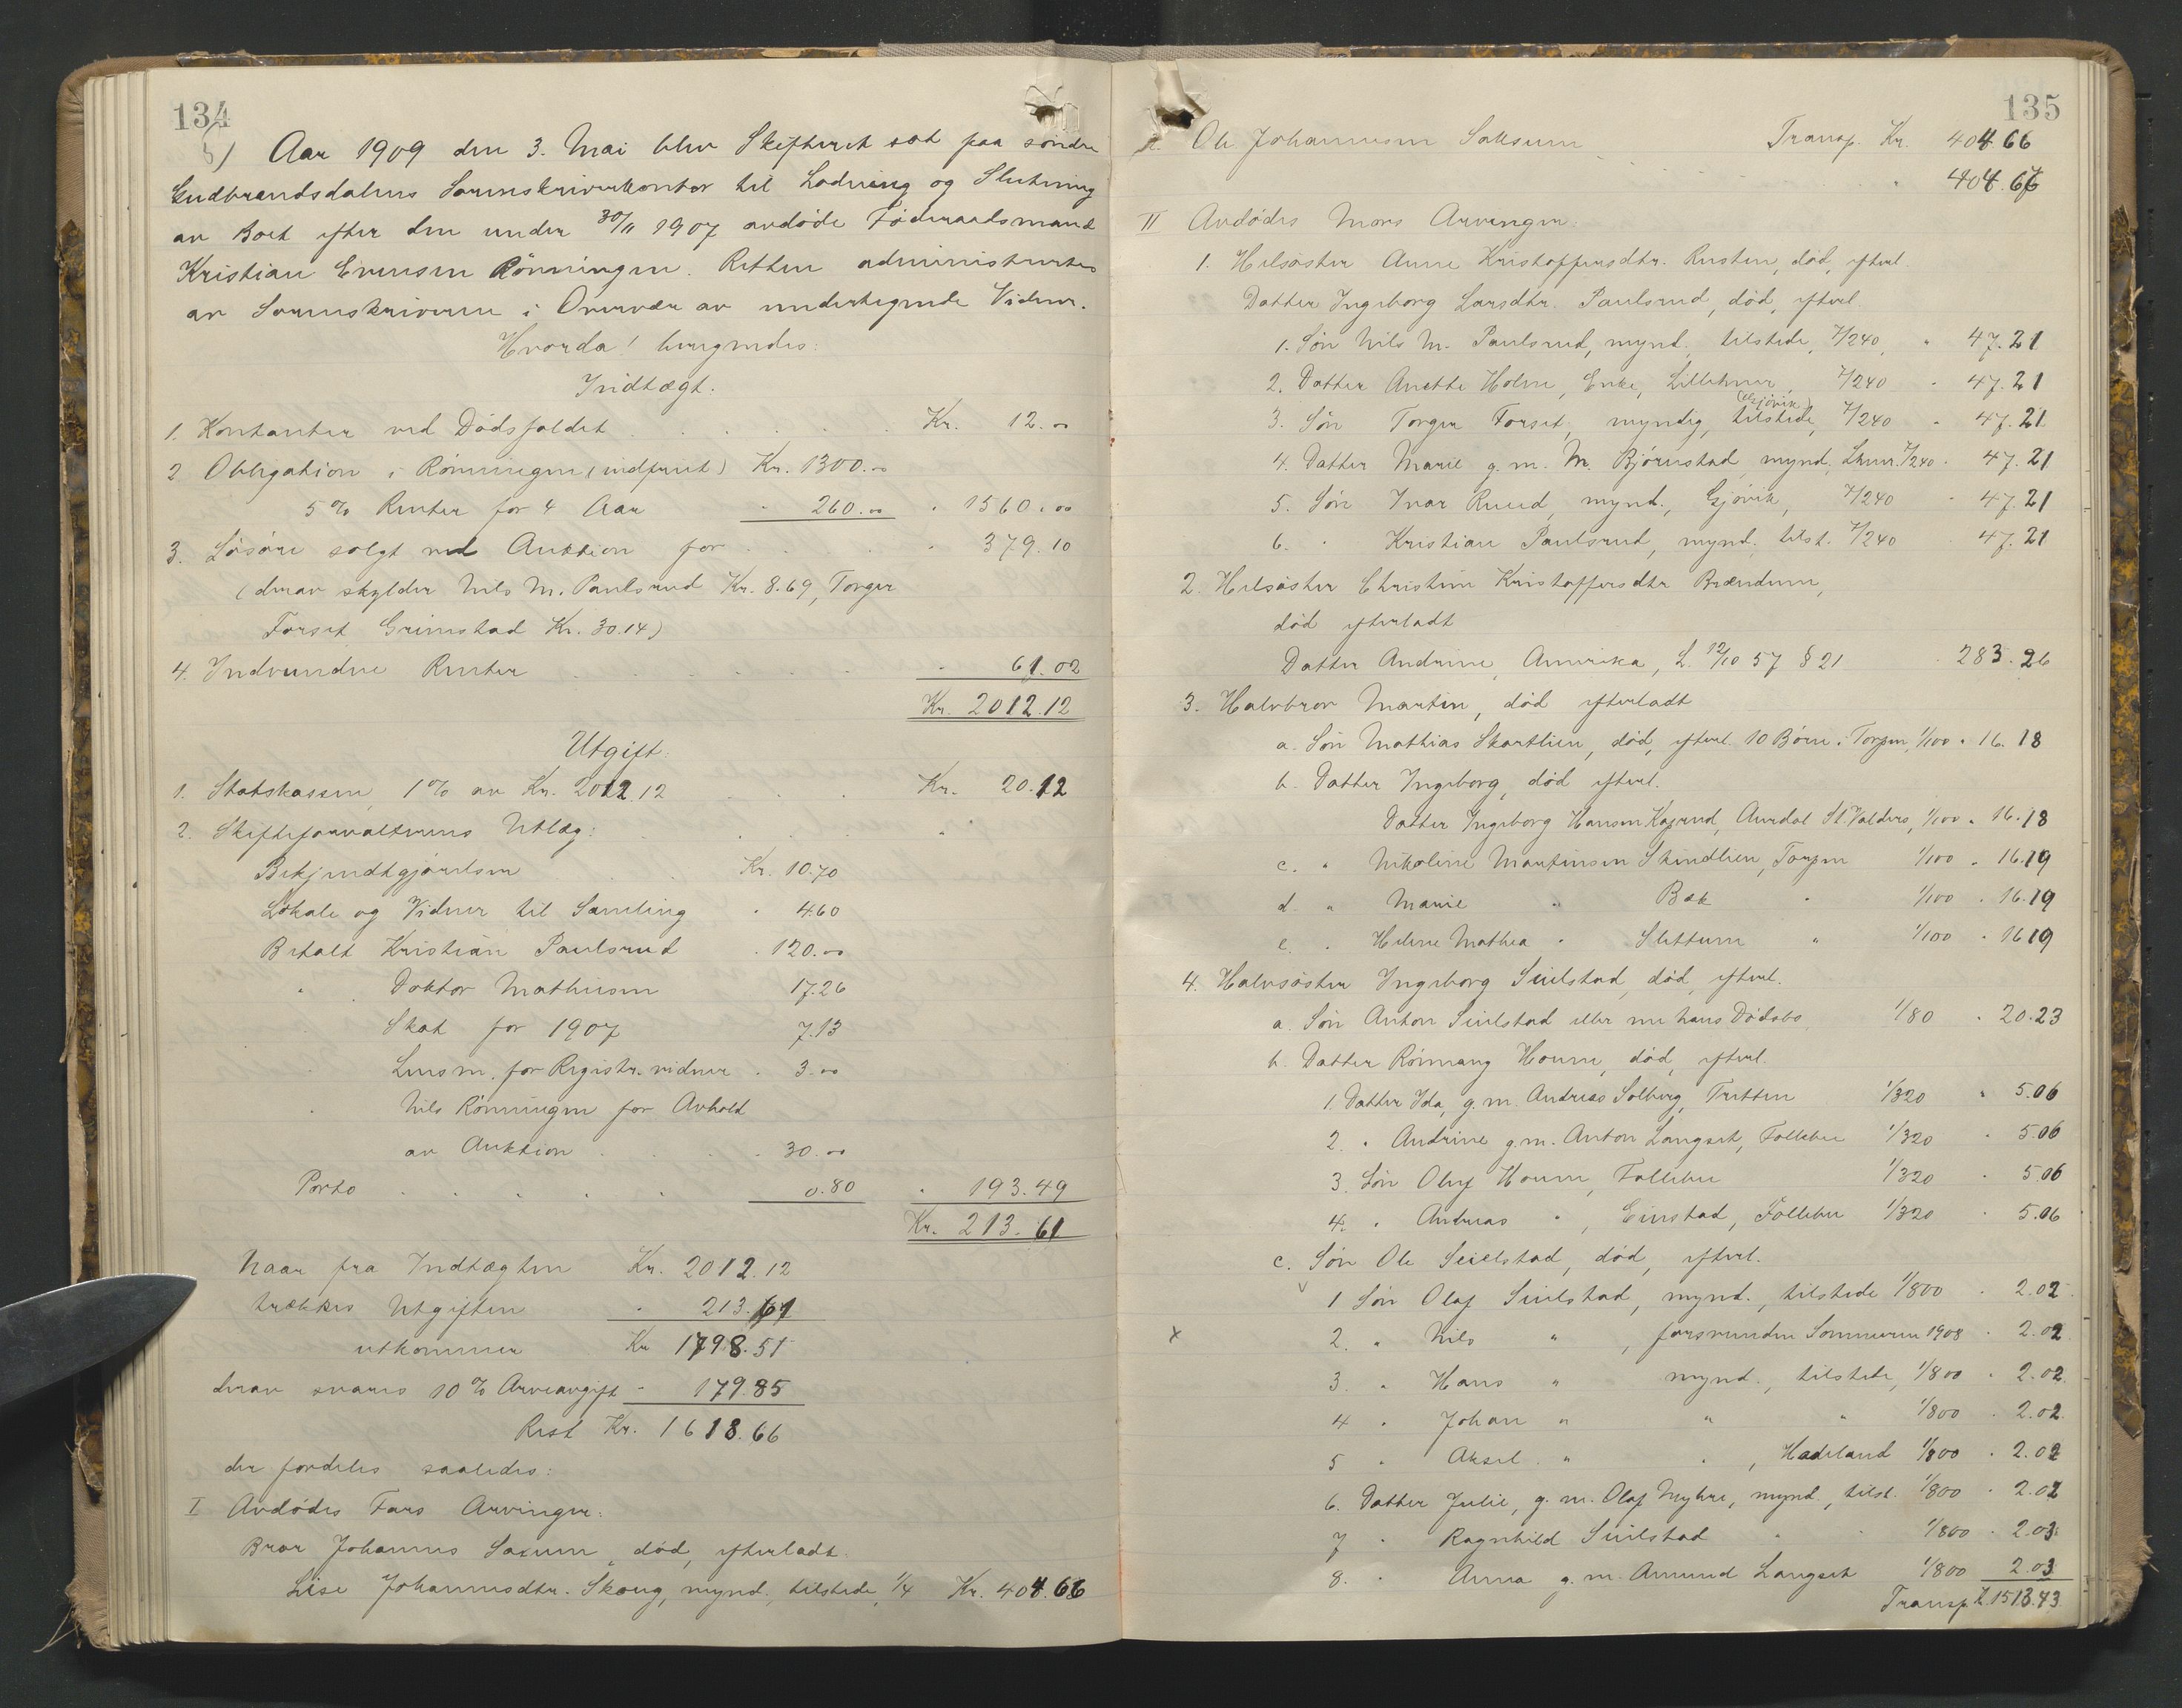 134
5) Aar 1909 den 3. Mai blev Skifteret sat paa søndre
Gudbrandsdalens Sorenskriverkontor til Lodning og Slutning
av Boet efter den under 30/11 1907 avdøde Føderaadsmand
Kristian Evensen Rønningen. Retten administrertes
av Sorenskriveren i Overvær av undertegnede Vidner.
Hvorda! beregnedes:
Indtægt.
1. Kontanter ved Dødsfaldet . . . . . . Kr. 12.00
2. Obligation i Rønningen (indfriet) Kr. 1300.00
5 % Renter for 4 Aar " 260.00 " 1560.00
3. Løsøre solgt ved Auktion for . . . . " 379.10
(derav skylder Nils M. Paulsrud Kr. 8.69, Torger
Forset Grimstad Kr. 30.14)
4. Indvundne Renter . . . . . . " 61.02
Kr. 2012.12
Utgift.
1. Statskassen, 1 % av Kr. 2012.12 . . . Kr. 20.12
2. Skifteforvalterens Utlæg: . . . . "
Bekjendtgjørelsen . . . Kr. 10.70
Lokale og Vidner til Samling " 4.60
Betalt Kristian Paulsrud " 120.00
" Doktor Mathiesen 17.26
" Skat for 1907 7.13
" Lensm. for Registr. vidner " 3.00
" Nils Rønningen for Avhold
av Auktion . . . . 30.00
Porto . . . . . 0.80 " 193.49
Kr. 213.61
Naar fra Indtægten Kr. 2012.12
trækkes Utgiften " 213.61
utkommer Kr 1798.51
derav svares 10 % Arveavgift " 179.85
Rest Kr. 1618.66
der fordeles saaledes:
I Avdødes Fars Arvinger:
Bror Johannes Saxum, død, efterladt.
Lise Johannesdtr. Skoug, mynd., tilstede, 1/4 Kr. 404.66
135
Ole Johannesen Saksum Transp. Kr. 404.66
" 404.67
II Avdødes Mors Arvinger.
1. Helsøster Anne Kristoffersdtr. Rusten, død, efterl.
Datter Ingeborg Larsdtr. Paulsrud, død, efterl.
1. Søn Nils M. Paulsrud, mynd., tilstede, 7/240, " 47.21
2. Datter Anette Holm, Enke, Lillehmer, 7/240 " 47.21
(Gjøvik)
3. Søn Torger Forset, myndig, tilstede, 7/240 " 47.21
4. Datter Marie g. m. M. Bjørnstad, mynd., Lhmr. 7/240 " 47.21
5. Søn Ivar Ruud, mynd., Gjøvik, 7/240 " 47.21
6. " Kristian Paulsrud, mynd., tilst. 7/240 " 47.21
2. Helsøster Christine Kristoffersdtr Brændum,
død efterladt
Datter Andrine, Amerika, L. 12/10 57 § 21 " 283.26
3. Halvbror Martin, død efterladt
a. Søn Mathias Skartlien, død, efterl. 10 Børn i Torpen, 1/100 " 16.18
b. Datter Ingeborg, død efterl.
Datter Ingeborg Hansen Kajerud, Aurdal St. Valders, 1/100 " 16.18
c. " Nikoline Martinsen Skindlien, Torpen 1/100 " 16.19
d. " Marie " Bæk " 1/100 " 16.19
e. " Helene Mathea " Slettum " 1/100 " 16.19
4. Halvsøster Ingeborg Seielstad, død, efterl.
a. Søn Anton Seielstad eller nu hans Dødsbo 1/80 " 20.23
b. Datter Rønnaug Houm, død, efterl.
1. Datter Ida, g. m. Andreas Solberg, Tretten 1/320 " 5.06
2. " Andrine g. m. Anton Langset, Follebu 1/320 " 5.06
3. Søn Oluf Houm, Follebu 1/320 " 5.06
4. " Andreas " , Einstad, Follebu 1/320 " 5.06
c. Søn Ole Seielstad, død, efterl.
v 1 Søn Olaf Seielstad, mynd., tilstede 1/800 " 2.02
x 2. " Nils " , forsvunden Sommeren 1908 " 2.02
3. " Hans " mynd., tilstede, 1/800 " 2.02
4 " Johan " " " 1/800 " 2.02
5 " Aksel " " , Hadeland 1/800 " 2.02
6. Datter Julie, g. m. Olaf Myhre, mynd., tilst. 1/800 " 2.02
7 " Ragnhild Seielstad " " 1/800 " 2.03
8. " Anna g. m. Amund Langset 1/800 2.03
Transp K. 1513.43